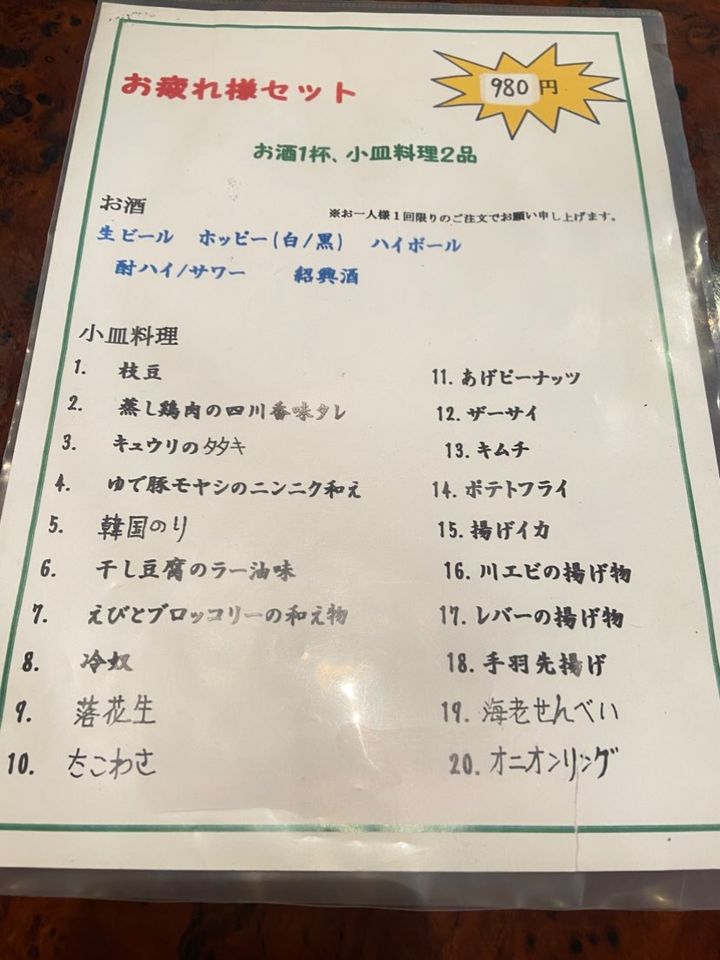 お疲れ様セット
980円
お酒1杯、小皿料理2品
お酒
※お一人様1回限りのご注文でお願い申し上げます。
生ビール ホッピー(白/黒) ハイボール
酎ハイ/サワー 紹興酒
小皿料理
1. 枝豆
2. 蒸し鶏肉の四川香味タレ
3. キュウリのタタキ
4. ゆで豚モヤシのニンニク和え
5. 韓国のり
6. 干し豆腐のラー油味
7. えびとブロッコリーの和え物
8. 冷奴
9. 落花生
10. たこわさ
11. あげピーナッツ
12. ザーサイ
13. キムチ
14. ポテトフライ
15. 揚げイカ
16. 川エビの揚げ物
17. レバーの揚げ物
18. 手羽先揚げ
19. 海老せんべい
20. オニオンリング